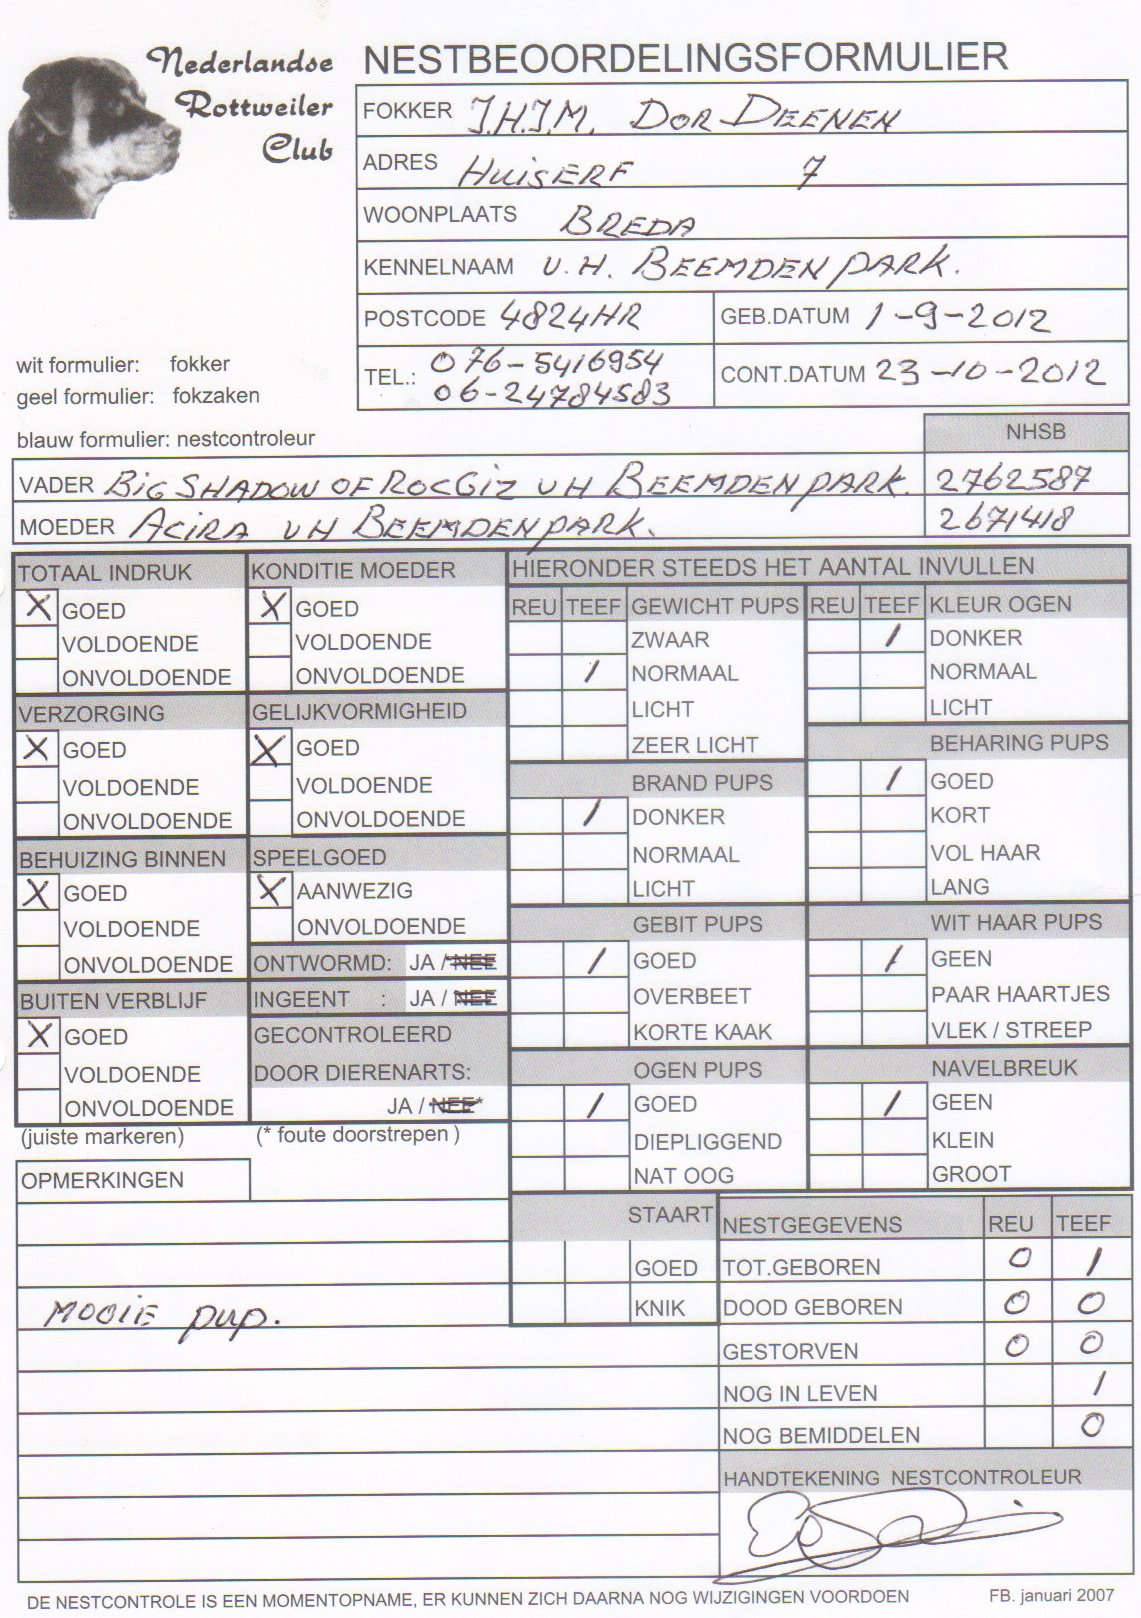 Nederlandse
Rottweiler
Club
NESTBEOORDELINGSFORMULIER
FOKKER J.H.J.M. DOR DEENEN
ADRES HUISERF 7
WOONPLAATS BREDA
KENNELNAAM V.H. BEEMDENPARK.
POSTCODE 4824HR GEB.DATUM 1-9-2012
TEL.: 076-5416954 CONT.DATUM 23-10-2012
06-24784583
wit formulier: fokker
geel formulier: fokzaken
blauw formulier: nestcontroleur
NHSB
VADER BIG SHADOW OF ROCGIZ VH BEEMDENPARK. 2762587
MOEDER ACIRA VH BEEMDENPARK. 2671418
TOTAAL INDRUK
X GOED
VOLDOENDE
ONVOLDOENDE
VERZORGING
X GOED
VOLDOENDE
ONVOLDOENDE
BEHUIZING BINNEN
X GOED
VOLDOENDE
ONVOLDOENDE
BUITEN VERBLIJF
X GOED
VOLDOENDE
ONVOLDOENDE
(juiste markeren)
KONDITIE MOEDER
X GOED
VOLDOENDE
ONVOLDOENDE
GELIJKVORMIGHEID
X GOED
VOLDOENDE
ONVOLDOENDE
SPEELGOED
X AANWEZIG
ONVOLDOENDE
ONTWORMD: JA / NEE
INGEENT : JA / NEE
GECONTROLEERD
DOOR DIERENARTS:
JA / NEE*
(* foute doorstrepen )
HIERONDER STEEDS HET AANTAL INVULLEN
REU TEEF GEWICHT PUPS
ZWAAR
1 NORMAAL
LICHT
ZEER LICHT
BRAND PUPS
1 DONKER
NORMAAL
LICHT
GEBIT PUPS
1 GOED
OVERBEET
KORTE KAAK
OGEN PUPS
1 GOED
DIEPLIGGEND
NAT OOG
STAART
GOED
KNIK
REU TEEF KLEUR OGEN
1 DONKER
NORMAAL
LICHT
BEHARING PUPS
1 GOED
KORT
VOL HAAR
LANG
WIT HAAR PUPS
1 GEEN
PAAR HAARTJES
VLEK / STREEP
NAVELBREUK
1 GEEN
KLEIN
GROOT
OPMERKINGEN
MOOIE pup.
NESTGEGEVENS REU TEEF
TOT.GEBOREN 0 1
DOOD GEBOREN 0 0
GESTORVEN 0 0
NOG IN LEVEN 1
NOG BEMIDDELEN 0
HANDTEKENING NESTCONTROLEUR
DE NESTCONTROLE IS EEN MOMENTOPNAME, ER KUNNEN ZICH DAARNA NOG WIJZIGINGEN VOORDOEN FB. januari 2007